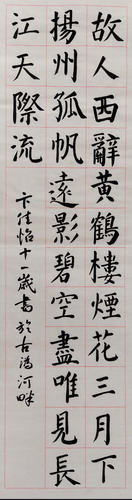 故人西辭黃鶴樓煙花三月下
揚州孤帆遠影碧空盡唯見長
江天際流
卞佳怡十一歲書於古河畔